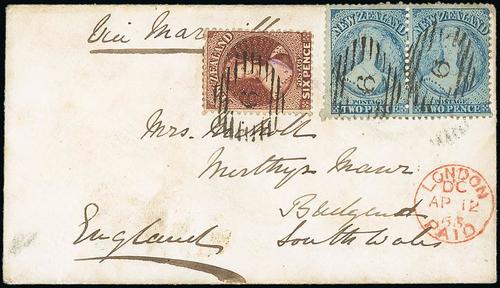 Via Mar
NEW ZEALAND
SIX PENCE
6
NEW ZEALAND
POSTAGE
TWO PENCE
6
NEW ZEALAND
POSTAGE
TWO PENCE
6
Mrs.
Merthyr Mawr
Bridgend
South Wales
England
LONDON
DC
AP 12
PAID